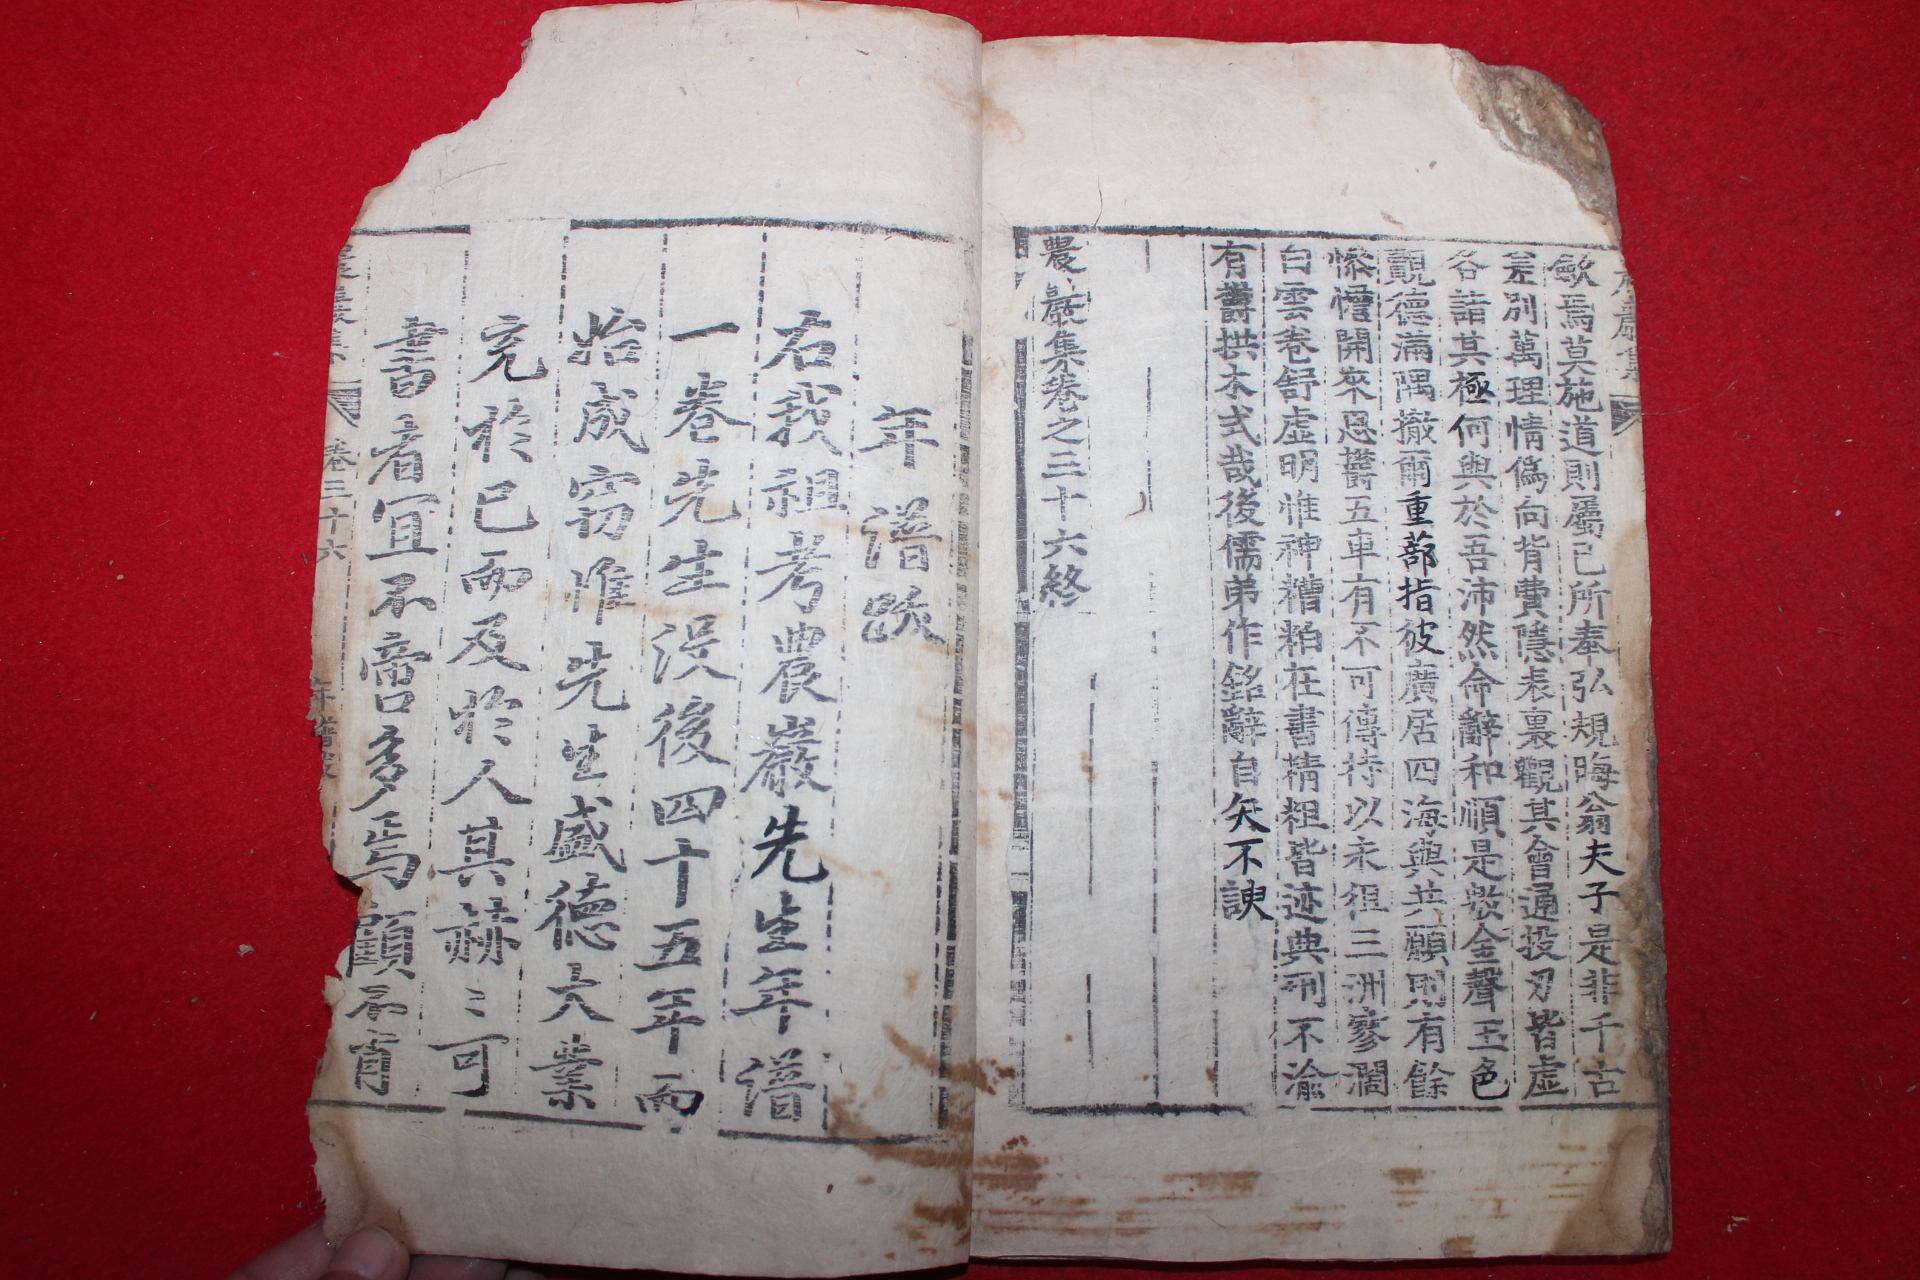 斂焉莫施道則屬己所奉弘規晦翁夫子是非千古
差別萬理情僞向背費隱表裏觀其會通投刃皆虛
各詣其極何與於吾沛然命辭和順是敷金聲玉色
覿德滿隅撤爾重蔀指彼廣居四海與共願則有餘
慘憯開來恩欝五車有不可傳待以永徂三洲寥濶
白雲卷舒虛明惟神糟粕在書精粗皆迹典刑不渝
有欝拱木式哉後儒弟作銘辭自矢不諛
農巖集卷之三十六終
年譜跋
右我祖考農巖先生年譜
一卷先生沒後四十五年而
始成窃惟先生盛德大業
充於己而及於人其赫〻可
書者宜不啻多焉顧不肖
卷三十六
年譜跋